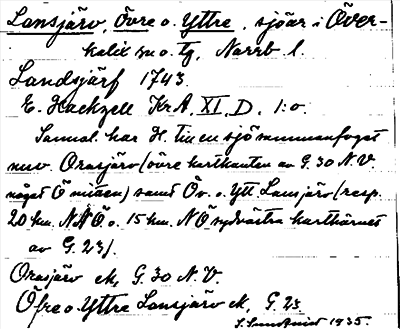 Lansjärv, Övre o. Yttre, sjöar i Över-
kalix sn o. tg, Norrb. l.
Landsjärf 1743
E. Hackzell KrA, XI, D, 1:o.
Sannol. har H. till en sjö sammanfogat
nuv. Orasjärv (övre kartkanten av G. 30 N.V.
något Ö mitten) samt Öv. o. Ytt Lansjärv (resp.
20 km. NNO o. 15 km. NO sydvästra karthörnet
av G. 23).
Orasjärv ek, G. 30 N.V.
Öfre o. Yttre Lansjärv ek, G. 23
1935.